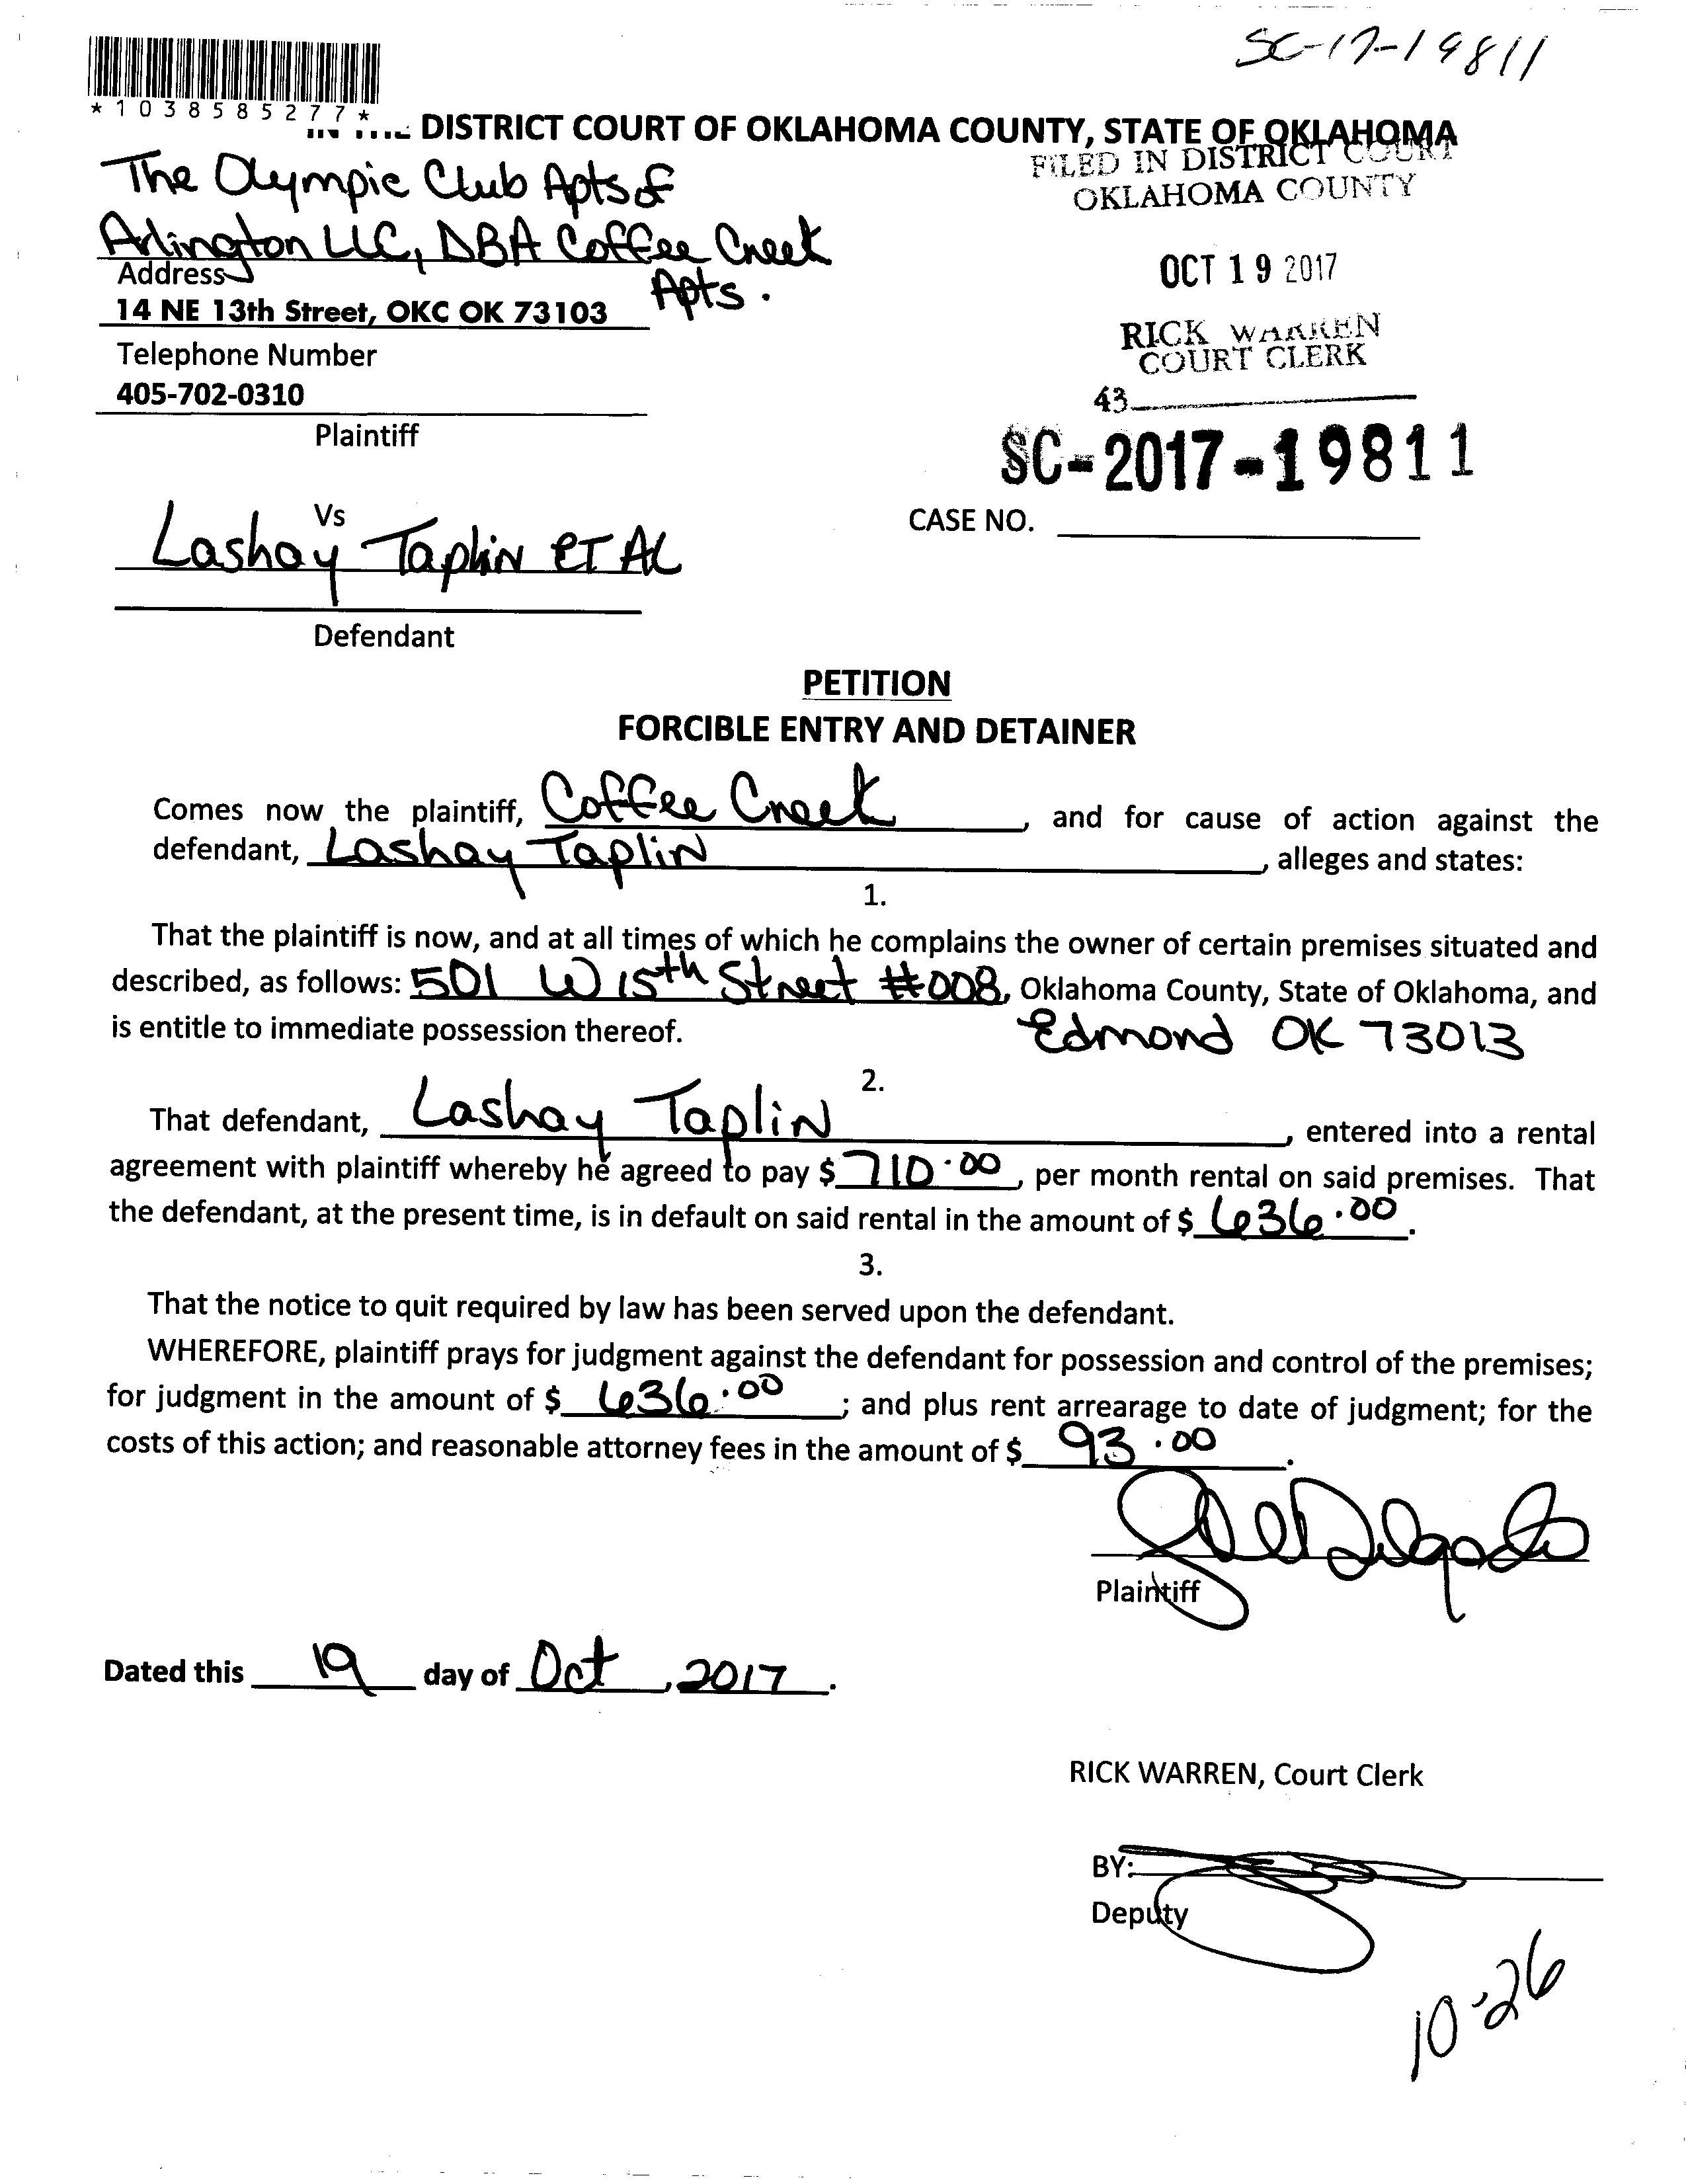 SC-17-19811
*1038585277*
IN THE DISTRICT COURT OF OKLAHOMA COUNTY, STATE OF OKLAHOMA
The Olympic Club Apts of
Arlington LLC, DBA Coffee Creek
Apts.
Address
14 NE 13th Street, OKC OK 73103
Telephone Number
405-702-0310
Plaintiff
FILED IN DISTRICT COURT
OKLAHOMA COUNTY
OCT 19 2017
RICK WARREN
COURT CLERK
43
SC-2017-19811
CASE NO.
Vs
Lashay Taplin ET AL
Defendant
PETITION
FORCIBLE ENTRY AND DETAINER
Comes now the plaintiff, Coffee Creek, and for cause of action against the
defendant, Lashay Taplin, alleges and states:
1.
That the plaintiff is now, and at all times of which he complains the owner of certain premises situated and
described, as follows: 501 W 15th Street #008, Oklahoma County, State of Oklahoma, and
is entitle to immediate possession thereof. Edmond OK 73013
2.
That defendant, Lashay Taplin, entered into a rental
agreement with plaintiff whereby he agreed to pay $ 710.00, per month rental on said premises. That
the defendant, at the present time, is in default on said rental in the amount of $ 636.00.
3.
That the notice to quit required by law has been served upon the defendant.
WHEREFORE, plaintiff prays for judgment against the defendant for possession and control of the premises;
for judgment in the amount of $ 636.00; and plus rent arrearage to date of judgment; for the
costs of this action; and reasonable attorney fees in the amount of $ 93.00.
Delgado
Plaintiff
Dated this 19 day of Oct, 2017.
RICK WARREN, Court Clerk
BY:
Deputy
10-26